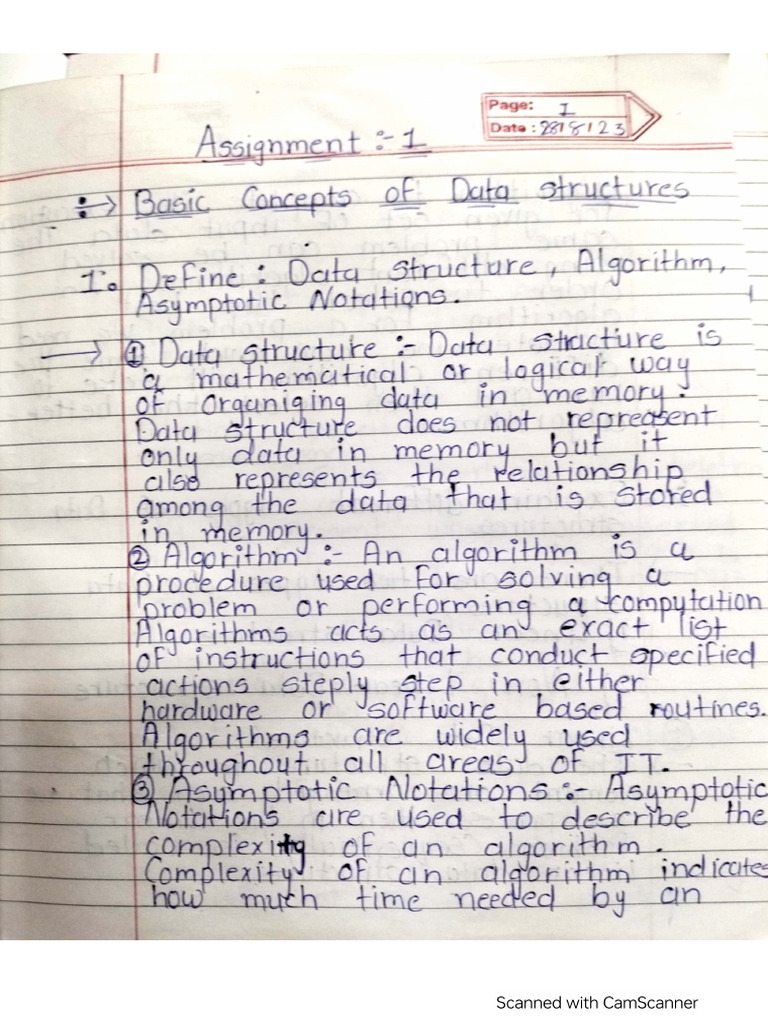 Page: 1
Date: 28/8/23
Assignment :- 1
Basic Concepts of Data structures
1. Define: Data structure, Algorithm,
Asymptotic Notations.
① Data structure :- Data structure is
a mathematical or logical way
of organiging data in memory.
Data structure does not repreasent
only data in memory but it
also represents the relationship
among the data that is stored
in memory.
② Algorithm :- An algorithm is a
procedure used for solving a
problem or performing a computation
Algorithms acts as an exact list
of instructions that conduct specified
actions steply step in either
hardware or software based routines.
Algorithms are widely used
throughout all areas of IT.
③ Asymptotic Notations :- Asymptotic
Notations are used to describe the
complexity of an algorithm.
Complexity of an algorithm indicates
how much time needed by an
Scanned with CamScanner